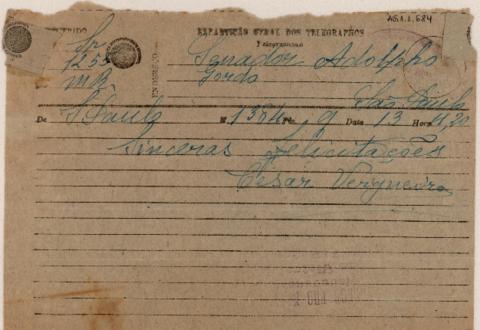 AG.1.1.684
REPARTIÇÃO GERAL DOS TELEGRAPHOS
Telegramma
Sp
1255
MB
Senador Adolpho
Gordo
São Paulo
De S. Paulo N 1384 Pls. 9 Data 13 Hora 11,20
Sinceras felicitações
Cesar Vergueiro